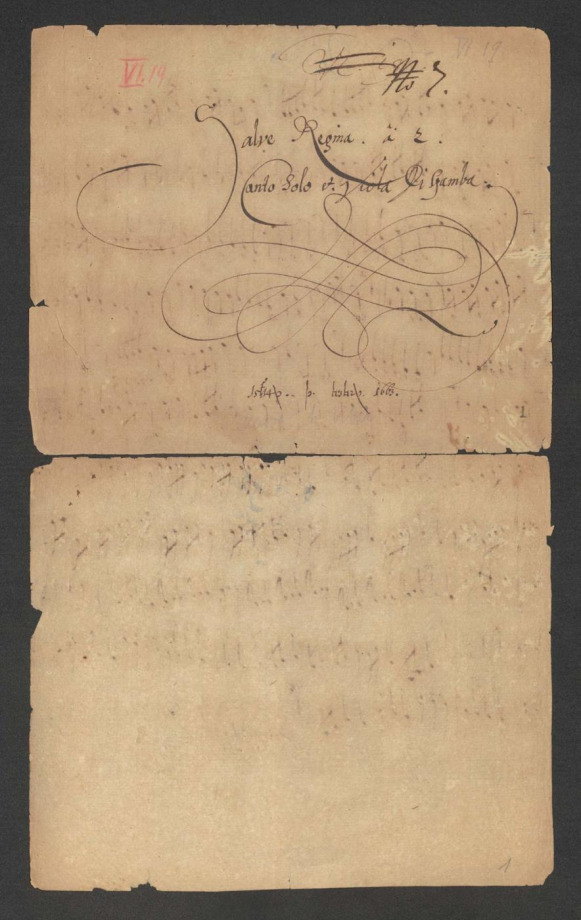 VI.19
VI 19
No 7.
Salve Regina. à 2.
Canto Solo et. Viola Di Gamba.
1
1